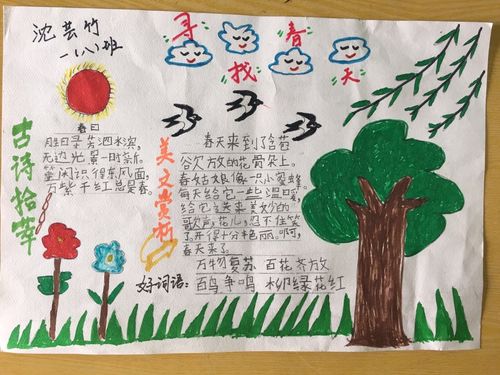 沈芸竹
一(八)班
寻找春天
古诗拾萃
春日
胜日寻芳泗水滨,
无边光景一时新。
等闲识得东风面,
万紫千红总是春。
美文赏析
春天来到了含苞
欲放的花骨朵上。
春姑娘像一只小蜜蜂,
每天给它一些温暖,
给它送来美妙的
歌声,花儿忍不住笑
了,开得十分艳丽。啊,
春天来了。
万物复苏 百花齐放
好词语: 百鸟争鸣 柳绿花红